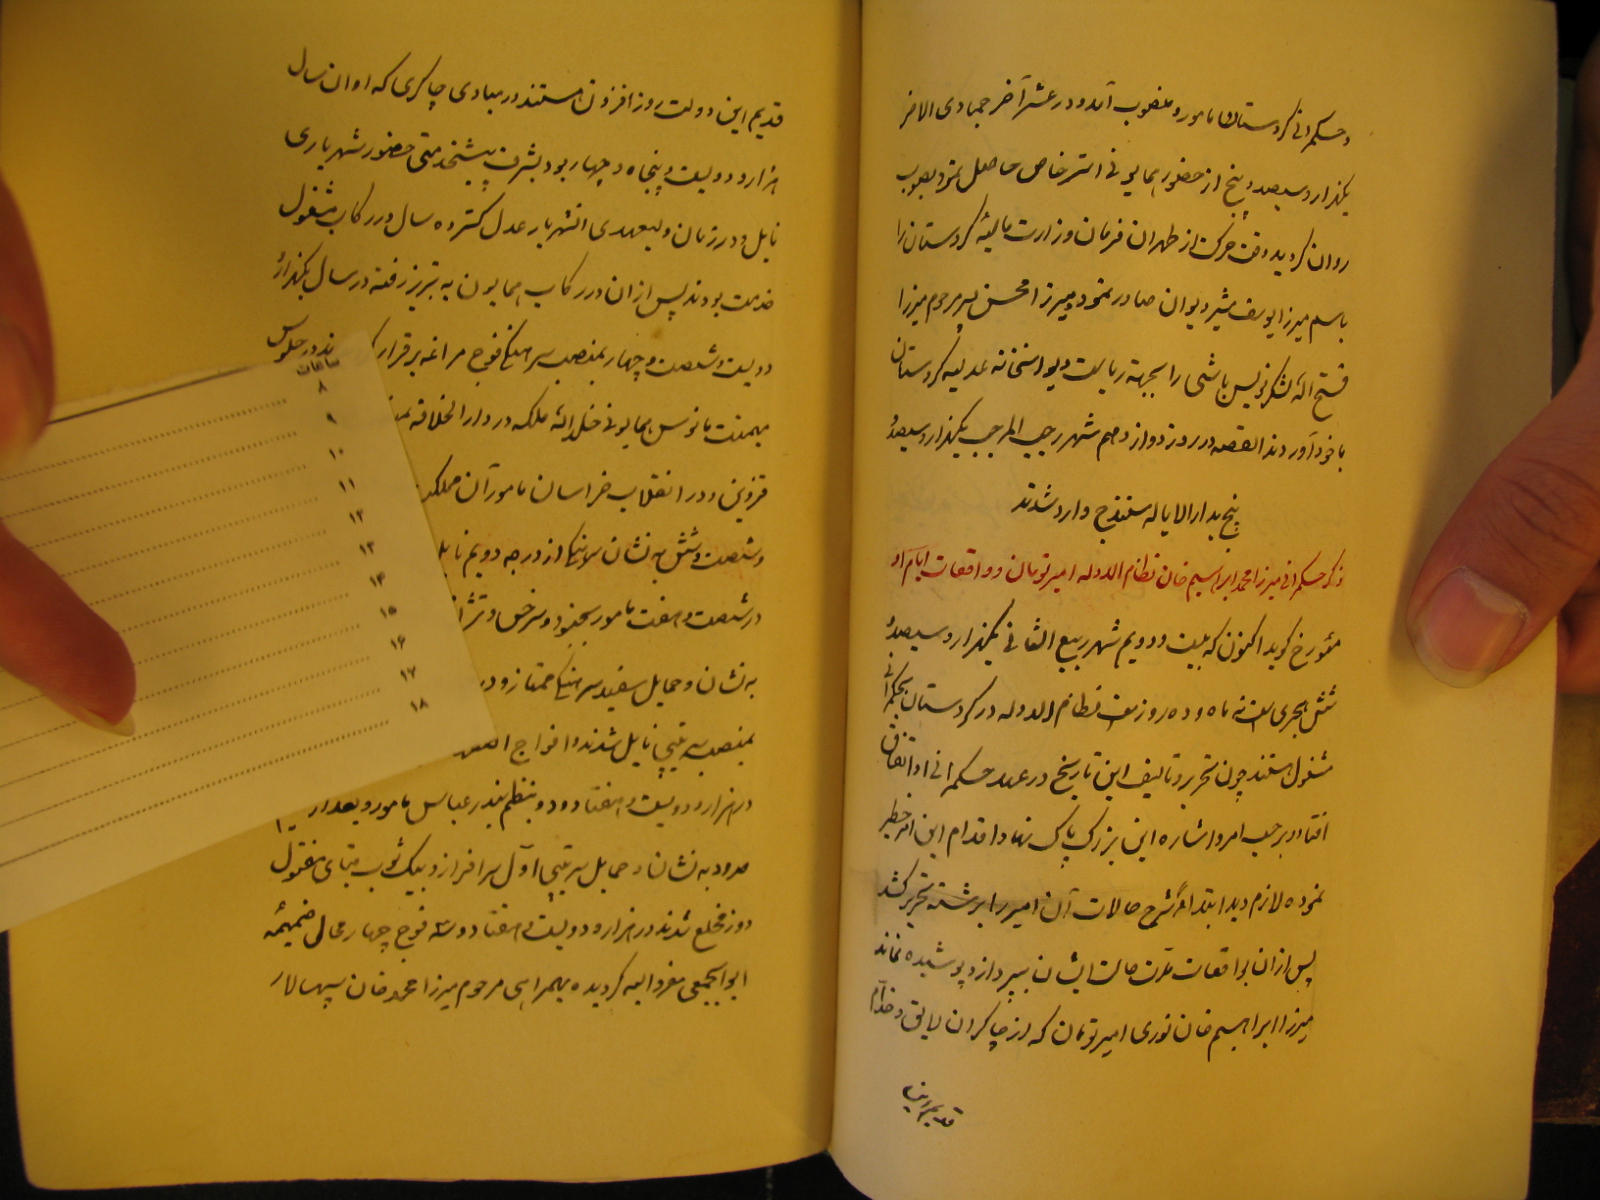 و حکمرانی کردستان مامور و منصوب آمد و در عشر آخر جمادی الاخر
یکهزار و سیصد و پنج از حضور همایونی استرخاص حاصل نمود بصوب
روان گردید وقت حرکت از طهران فرمان وزارت مالیهٔ کردستان را
باسم میرزا یوسف مشیر دیوان صادر نمود و میرزا محسن پسر مرحوم میرزا
فتح الله لشکرنویس باشی را بجهة ریاست دیوانخانه عدلیه کردستان
با خود آوردند القصه در روز دوازدهم شهر رجب المرجب یکهزار و سیصد و
پنج بدار الایاله سنندج وارد شدند
ذکر حکمرانی میرزا محمد ابراهیم خان نظام الدوله امیر تومان و واقعات ایام او
مئورخ گوید اکنون که بیست و دویم شهر ربیع الثانی یکهزار و سیصد و
شش هجری است نه ماه و ده روز است نظام الدوله در کردستان بحکمرانی
مشغول هستند چون تحریر و تالیف این تاریخ در عهد حکمرانی او اتفاق
افتاد و بر حسب امر و اشاره این بزرگ پاک نهاد اقدام این امر خطیر
نموده لازم دید ابتدا شرح حالات آن امیر را برشته تحریر کشد
پس از آن بواقعات مدت حالت ایشان بپردازد پوشیده نماند
میرزا ابراهیم خان نوری امیر تومان که از چاکران لایق و خدام
قدیم این
قدیم این دولت روز افزون هستند در مبادی چاکری که اوان سال
هزار و دویست و پنجاه و چهار بود بشرف پیشخدمتی حضور شهریاری
نایل و در زمان ولیعهدی آنشهریار عدل گستر ده سال در رکاب مشغول
خدمت بودند پس از آن در رکاب همایون به تبریز رفته در سال یکهزار و
دویست و شصت و چهار بمنصب سرهنگی فوج مراغه برقرار ند در جلوس
میمنت مانوس همایونی خلد الله ملکه در دار الخلافه
قزوین و در انقلاب خراسان مامور آن مملکت
و شصت و شش به نشان سرهنگی از درجه دویم نایل
در شصت و هفت مامور بجنورد و سرخس و
به نشان و حمایل سفید سرهنگی ممتاز و در
بمنصب سرتیپی نایل شدند و افواج
در هزار و دویست و هفتاد و دو بنظم بندر عباس مامور و بعد از
ورود به نشان و حمایل سرتیپی اول سرافراز و بیک ثوب قبای مفتول
دوز مخلع شدند در هزار و دویست و هفتاد و سه فوج چهار محال ضمیمهٔ
ابوابجمعی مغرد الیه گردیده بهمراهی مرحوم میرزا محمد خان سپهسالار
ساعات
۸
۹
۱۰
۱۱
۱۲
۱۳
۱۴
۱۵
۱۶
۱۷
۱۸